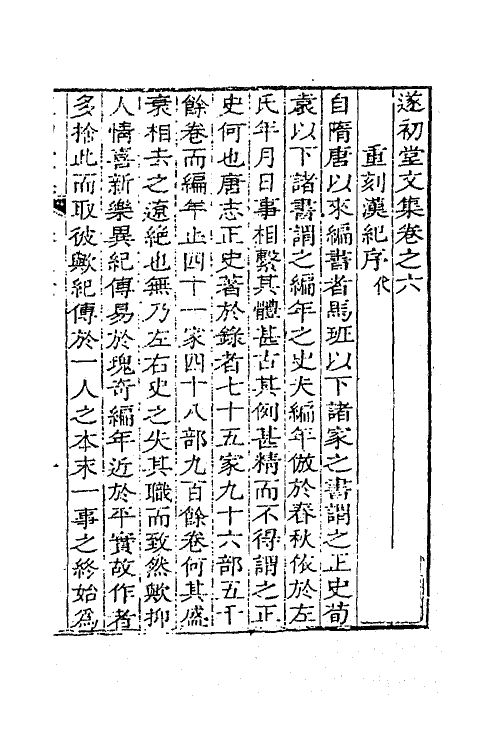 遂初堂文集卷之六
重刻漢紀序代
自隋唐以來編書者馬班以下諸家之書謂之正史荀
袁以下諸書謂之編年之史夫編年倣於春秋依於左
氏年月日事相繫其體甚古其例甚精而不得謂之正
史何也唐志正史著於錄者七十五家九十六部五千
餘卷而編年止四十一家四十八部九百餘卷何其盛
衰相去之遠絶也無乃左右史之失其職而致然歟抑
人情喜新樂異紀傳易於瑰奇編年近於平實故作者
多捨此而取彼歟紀傳於一人之本末一事之終始爲